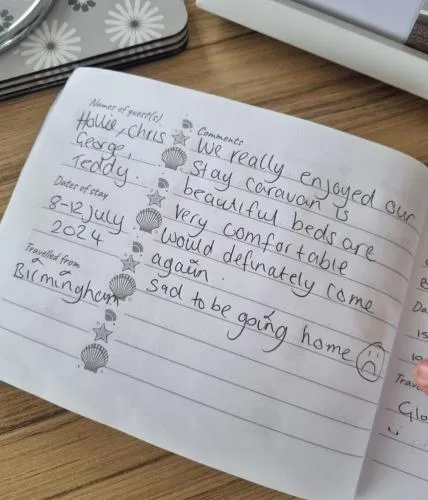 Names of guest(s)
Hollie, Chris
George,
Teddy.
Dates of stay
8-12 July
2024
Travelled from
Birmingham
Comments
We really enjoyed our
stay caravan is
beautiful beds are
very comfortable
would definately come
again.
Sad to be going home